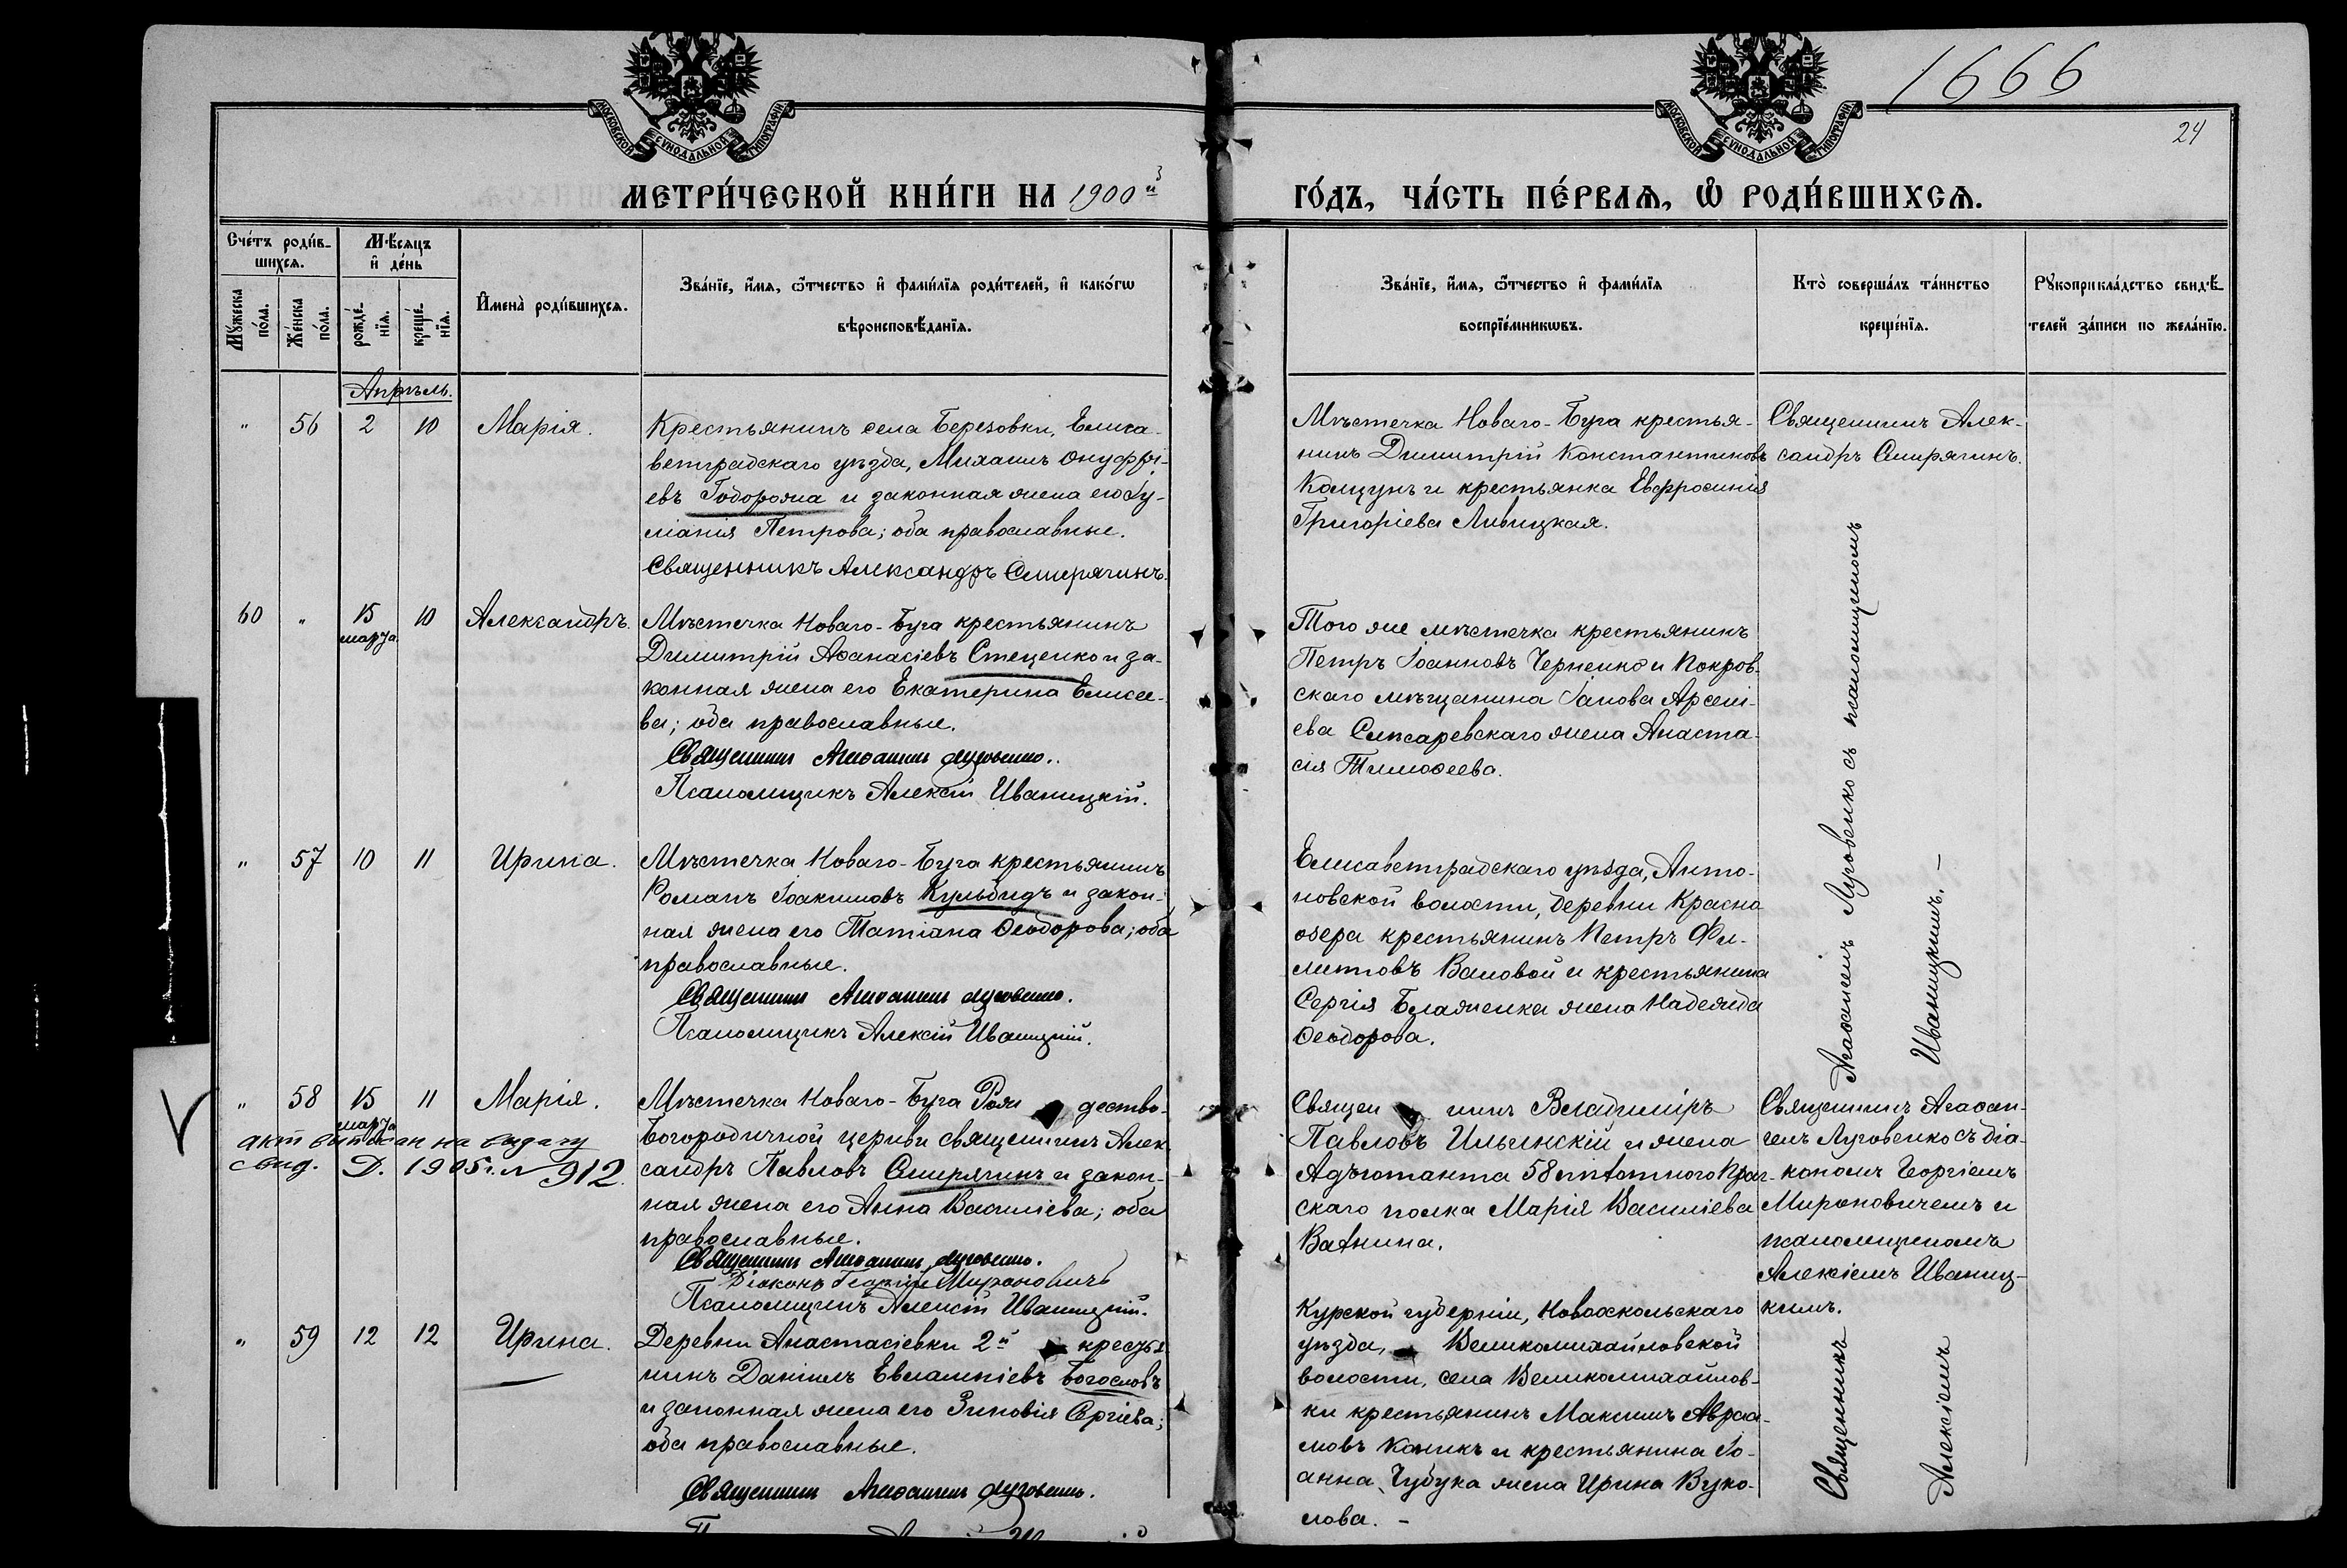 1666
24
МОСКОВСКОЙ СѴНОДАЛЬНОЙ ТИПОГРАФІИ
МОСКОВСКОЙ СѴНОДАЛЬНОЙ ТИПОГРАФІИ
МЕТРИ́ЧЕСКОЙ КНИ́ГИ НА 1900й
ГО́ДЪ, ЧА́СТЬ ПЕ́РВАѦ, Ѽ РОДИ́ВШИХСѦ.
Сче́тъ роди́вшихсѧ.
Мꙋ́жеска по́ла.
Же́нска по́ла.
Мѣ́сяцъ и҆ де́нь
рожде́нїѧ.
креще́нїѧ.
И҆мена̀ роди́вшихсѧ.
Зва́нїе, и҆́мѧ, ѻ҆́тчество и҆ фами́лїѧ роди́телей, и҆ како́гѡ
вѣроисповѣ́данїѧ.
Зва́нїе, и҆́мѧ, ѻ҆́тчество и҆ фами́лїѧ
воспрїе́мникѡвъ.
Кто̀ соверша́лъ та́инство
креще́нїѧ.
Рꙋкоприкла́дство свидѣ́-
телей за́писи по жела́нїю.
Апрѣль.
" 56 2 10 Марія.
Крестьянинъ села Березовки, Елиса-
ветградскаго уѣзда, Михаилъ Онуфрі-
евъ Годорожа и законная жена его Іу-
ліанія Петрова; оба православные.
Священникъ Александръ Смирягинъ.
Мѣстечка Новаго-Буга крестья-
нинъ Димитрій Константиновъ
Колцунъ и крестьянка Евфросинія
Григоріева Ливицкая.
Священникъ Алек-
сандръ Смирягинъ.
60 " 15 марта 10 Александръ.
Мѣстечка Новаго-Буга крестьянинъ
Димитрій Аѳанасіевъ Стеценко и за-
конная жена его Екатерина Елисее-
ва; оба православные.
Священникъ Агаѳангелъ Луговенко.
Псаломщикъ Алексій Иваницкій.
Того же мѣстечка крестьянинъ
Петръ Іоанновъ Черненко и Покров-
скаго мѣщанина Іакова Арсені-
ева Слюсаревскаго жена Анаста-
сія Тимоѳеева.
" 57 10 11 Ирина.
Мѣстечка Новаго-Буга крестьянинъ
Романъ Іоакимовъ Кульбидъ и закон-
ная жена его Татіана Ѳеодорова; оба
православные.
Священникъ Агаѳангелъ Луговенко.
Псаломщикъ Алексій Иваницкій.
Елисаветградскаго уѣзда, Анто-
новской волости, деревни Красно
озера крестьянинъ Петръ Фи-
липповъ Валовой и крестьянина
Сергія Блаженка жена Надежда
Ѳеодорова.
Агаѳангелъ Луговенко съ псаломщикомъ
Иваницкимъ. —
" 58 15 марта 11 Марія.
актъ выписан на выдачу
свид. Д. 1905 г. № 912.
Мѣстечка Новаго-Буга Рож дество-
Богородичной церкви священникъ Алек-
сандръ Павловъ Смирягинъ и закон-
ная жена его Анна Василіева; оба
православные.
Священникъ Агаѳангелъ Луговенко.
Діаконъ Георгій Мироновичъ
Псаломщикъ Алексій Иваницкій.
Священ никъ Владиміръ
Павловъ Ильинскій и жена
Адъютанта 58 пѣхотнаго Праг-
скаго полка Марія Василіева
Ватнина.
Священникъ Агаѳан-
гелъ Луговенко съ діа-
кономъ Георгіемъ
Мироновичемъ и
псаломщикомъ
Алексіемъ Иваниц-
кимъ.
" 59 12 12 Ирина.
Деревни Анастасіевки 2й крестья
нинъ Даніилъ Евлампіевъ Богословъ
и законная жена его Зиновія Сергіева;
оба православные.
Священникъ Агаѳангелъ Луговенко.
Курской губерніи, Новооскольскаго
уѣзда, Великомихайловской
волости, села Великомихайлов-
ки крестьянинъ Максимъ Авраа-
мовъ Коникъ и крестьянина Іо-
анна Чубука жена Ирина Вуко-
лова. -
Священникъ
Алексіемъ